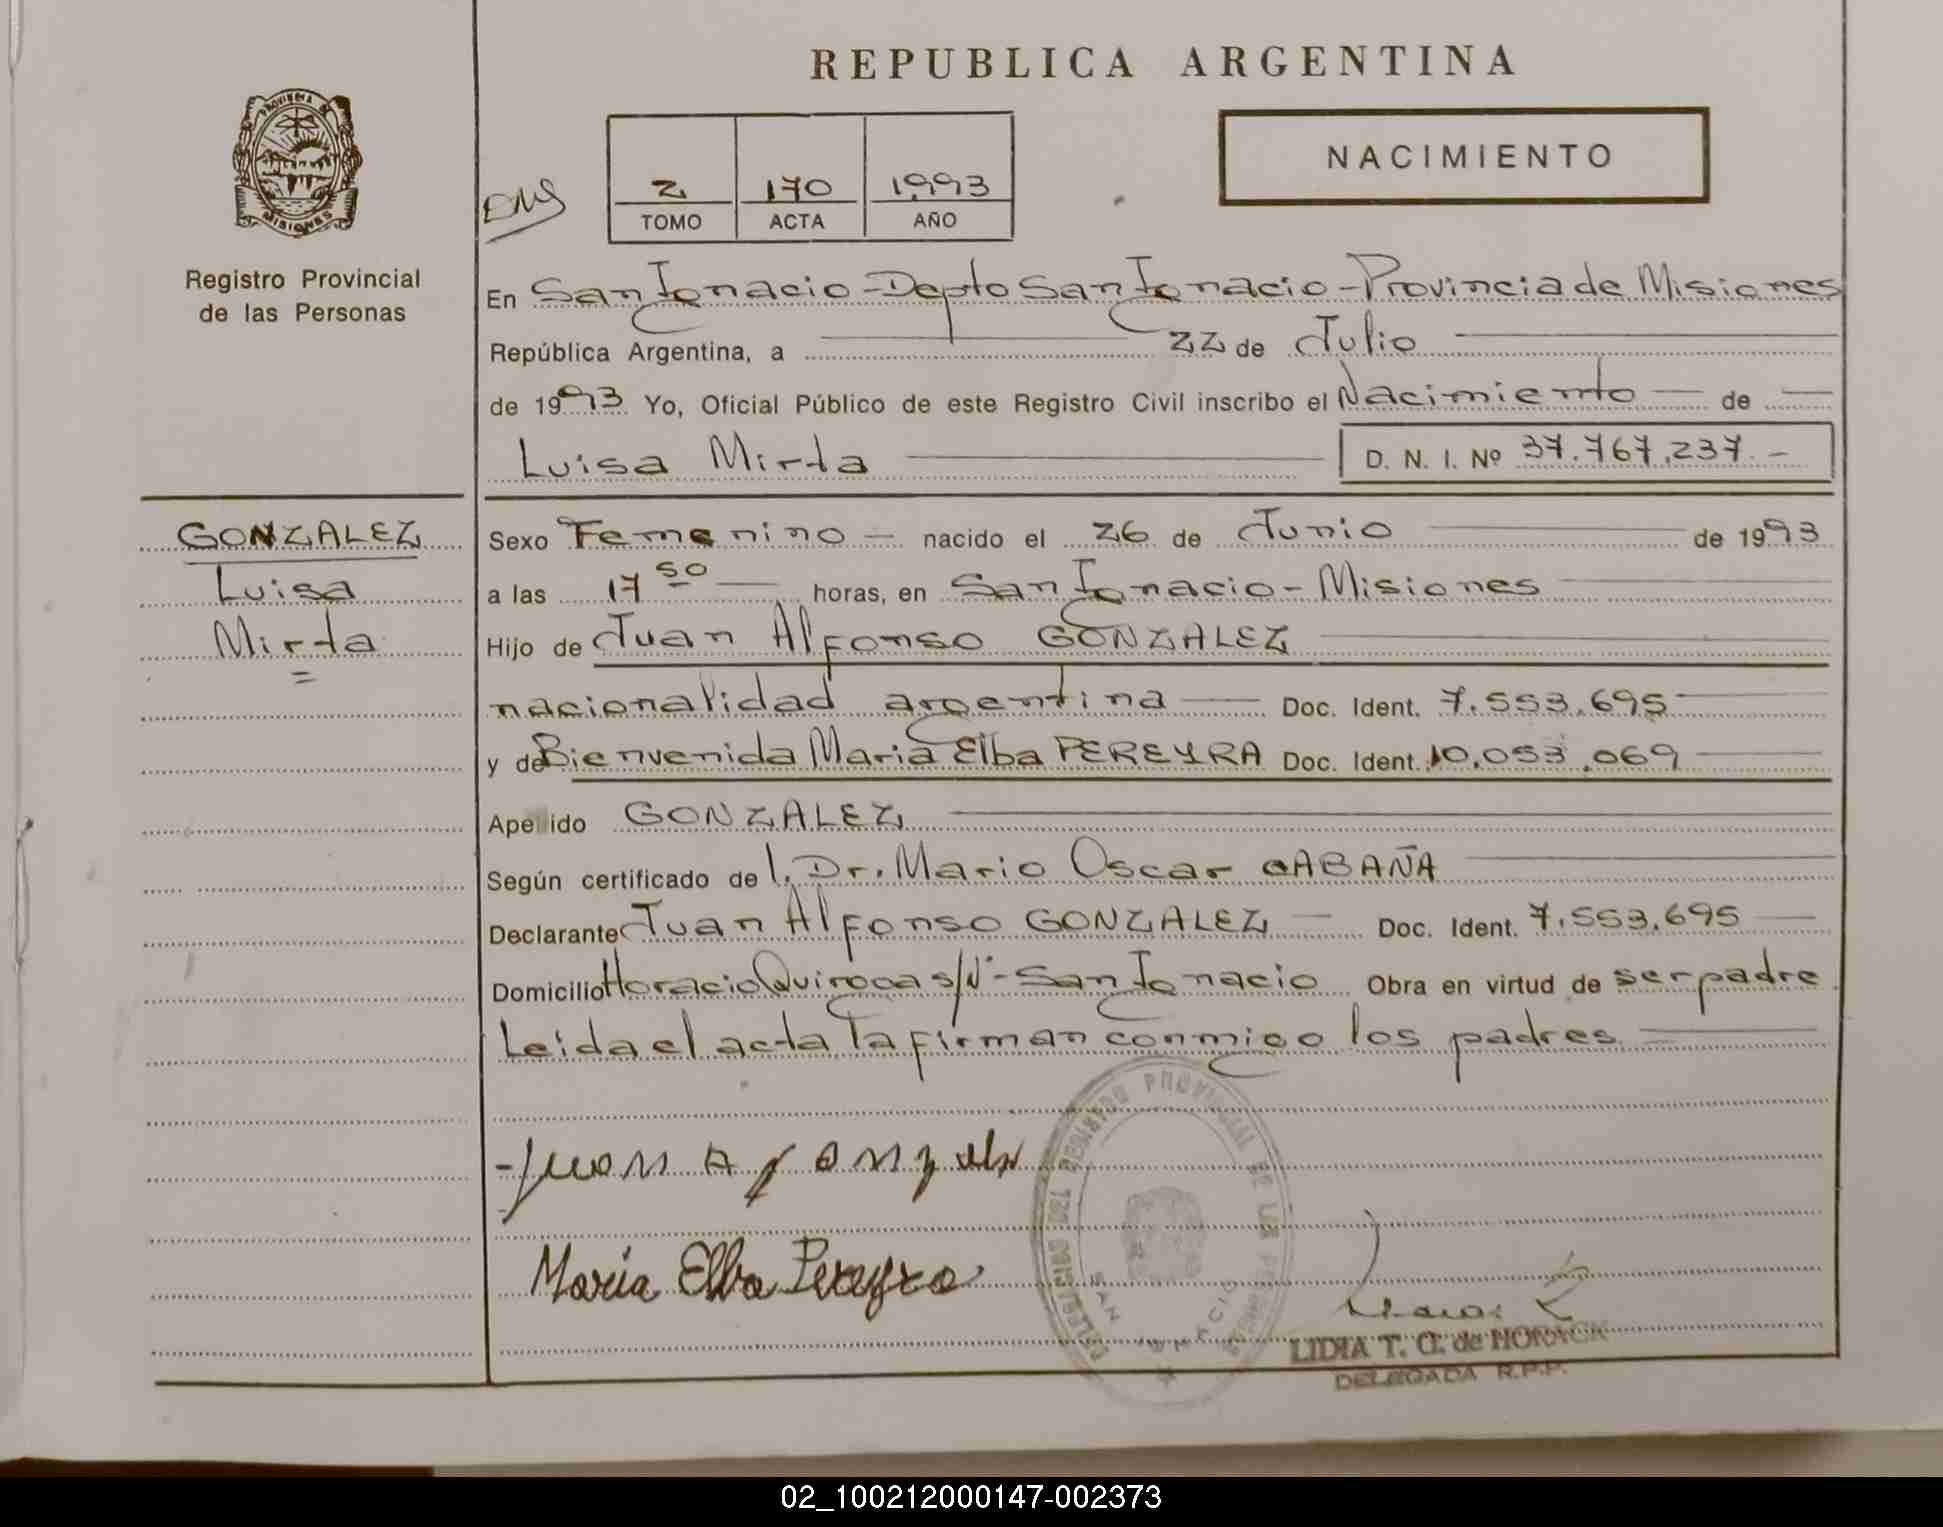 REPUBLICA ARGENTINA
PROVINCIA DE
MISIONES
Registro Provincial
de las Personas
2 170 1993
TOMO ACTA AÑO
NACIMIENTO
En San Ignacio - Depto San Ignacio - Provincia de Misiones
República Argentina, a 22 de Julio
de 1993 Yo, Oficial Público de este Registro Civil inscribo el Nacimiento de
Luisa Mirta D. N. I. Nº 37.767.237.-
GONZALEZ
Luisa
Mirta
Sexo Femenino nacido el 26 de Junio de 1993
a las 17 50 horas, en San Ignacio - Misiones
Hijo de Juan Alfonso GONZALEZ
nacionalidad argentina Doc. Ident. 7.553.695
y de Bienvenida Maria Elba PEREYRA Doc. Ident. 10.053.069
Apellido GONZALEZ
Según certificado de l. Dr. Mario Oscar CABAÑA
Declarante Juan Alfonso GONZALEZ Doc. Ident. 7.553.695
Domicilio Horacio Quiroga s/Nº - San Ignacio Obra en virtud de ser padre
Leida el acta la firman conmigo los padres
Juan A Gonzalez
Maria Elba Pereyra
REGISTRO PROVINCIAL DE LAS PERSONAS
SAN IGNACIO
LIDIA T. G. de HORNICK
DELEGADA R.P.P.
02_100212000147-002373